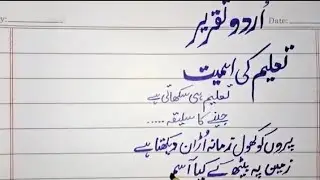 اُردو تقریر
Date:
تعلیم کی اہمیت
تعلیم ہی سکھاتی ہے
جینے کا سلیقہ .....
پروں کو کھول زمانہ اُڑان دیکھتا ہے
زمین پہ بیٹھ کے کیا آسم